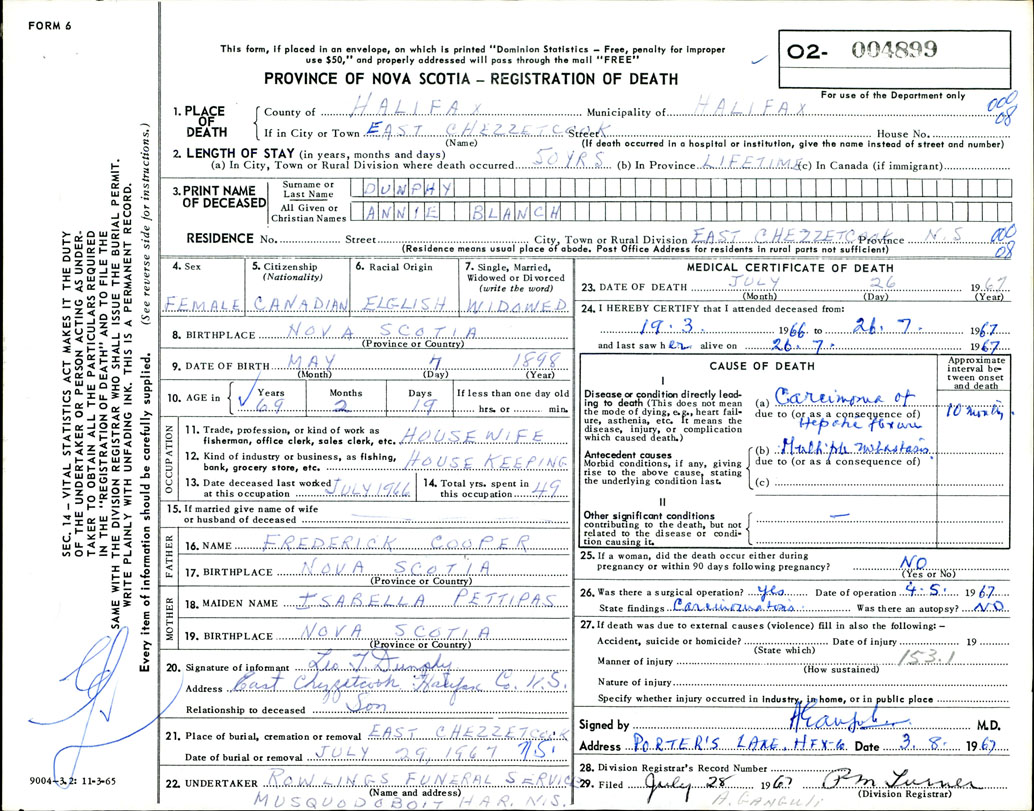 FORM 6
This form, if placed in an envelope, on which is printed "Dominion Statistics – Free, penalty for improper
use $50," and properly addressed will pass through the mail "FREE"
PROVINCE OF NOVA SCOTIA – REGISTRATION OF DEATH
02- 004899
For use of the Department only
1. PLACE OF DEATH
County of HALIFAX Municipality of HALIFAX
000
08
If in City or Town EAST CHEZZETCOOK Street House No.
(Name) (If death occurred in a hospital or institution, give the name instead of street and number)
2. LENGTH OF STAY (in years, months and days)
(a) In City, Town or Rural Division where death occurred 50 YRS (b) In Province LIFETIME (c) In Canada (if immigrant)
3. PRINT NAME OF DECEASED
Surname or Last Name DUNPHY
All Given or Christian Names ANNIE BLANCH
RESIDENCE No. Street City, Town or Rural Division EAST CHEZZETCOOK Province N.S
000
08
(Residence means usual place of abode. Post Office Address for residents in rural parts not sufficient)
4. Sex
FEMALE
5. Citizenship
(Nationality)
CANADIAN
6. Racial Origin
ELGLISH
7. Single, Married,
Widowed or Divorced
(write the word)
WIDOWED
8. BIRTHPLACE NOVA SCOTIA
(Province or Country)
9. DATE OF BIRTH MAY 7 1898
(Month) (Day) (Year)
10. AGE in Years Months Days If less than one day old
69 2 19 hrs. or min.
OCCUPATION
11. Trade, profession, or kind of work as
fisherman, office clerk, sales clerk, etc. HOUSEWIFE
12. Kind of industry or business, as fishing,
bank, grocery store, etc. HOUSE KEEPING
13. Date deceased last worked
at this occupation JULY 1966
14. Total yrs. spent in
this occupation 49
15. If married give name of wife
or husband of deceased
FATHER
16. NAME FREDERICK COOPER
17. BIRTHPLACE NOVA SCOTIA
(Province or Country)
MOTHER
18. MAIDEN NAME ISABELLA PETTIPAS
19. BIRTHPLACE NOVA SCOTIA
(Province or Country)
20. Signature of informant Leo T Dunphy
Address East Chezzetcook Halifax Co. N.S.
Relationship to deceased Son
21. Place of burial, cremation or removal EAST CHEZZETCOOK
Date of burial or removal JULY 29, 1967 N.S.
22. UNDERTAKER ROWLINGS FUNERAL SERVICE
(Name and address)
MUSQUODOBOIT HAR. N.S.
MEDICAL CERTIFICATE OF DEATH
23. DATE OF DEATH JULY 26 1967
(Month) (Day) (Year)
24. I HEREBY CERTIFY that I attended deceased from:
19.3. 1966 to 26.7. 1967
and last saw her alive on 26.7. 1967
CAUSE OF DEATH
Approximate interval between onset and death
I
Disease or condition directly leading to death (This does not mean the mode of dying, e.g., heart failure, asthenia, etc. It means the disease, injury, or complication which caused death.)
(a) Carcinoma of
due to (or as a consequence of)
Hepatic flexure
10 months
Antecedent causes
Morbid conditions, if any, giving rise to the above cause, stating the underlying condition last.
(b) Multiple metastasis
due to (or as a consequence of)
(c)
II
Other significant conditions
contributing to the death, but not related to the disease or condition causing it.
—
25. If a woman, did the death occur either during
pregnancy or within 90 days following pregnancy? NO
(Yes or No)
26. Was there a surgical operation? yes Date of operation 4.5. 1967
State findings Carcinomatosis Was there an autopsy? NO
27. If death was due to external causes (violence) fill in also the following: –
Accident, suicide or homicide? Date of injury 19
(State which)
Manner of injury 153.1
(How sustained)
Nature of injury
Specify whether injury occurred in industry, in home, or in public place
Signed by M.D.
Address PORTER'S LAKE, HFX. Date 3.8. 1967
28. Division Registrar's Record Number
29. Filed July 28 1967 P.M. Turner
(Division Registrar)
A. GANGULI
SEC. 14 – VITAL STATISTICS ACT MAKES IT THE DUTY
OF THE UNDERTAKER OR PERSON ACTING AS UNDER-
TAKER TO OBTAIN ALL THE PARTICULARS REQUIRED
IN THE "REGISTRATION OF DEATH" AND TO FILE THE
SAME WITH THE DIVISION REGISTRAR WHO SHALL ISSUE THE BURIAL PERMIT.
WRITE PLAINLY WITH UNFADING INK. THIS IS A PERMANENT RECORD.
Every item of information should be carefully supplied. (See reverse side for instructions.)
9004–3.2: 11-3-65